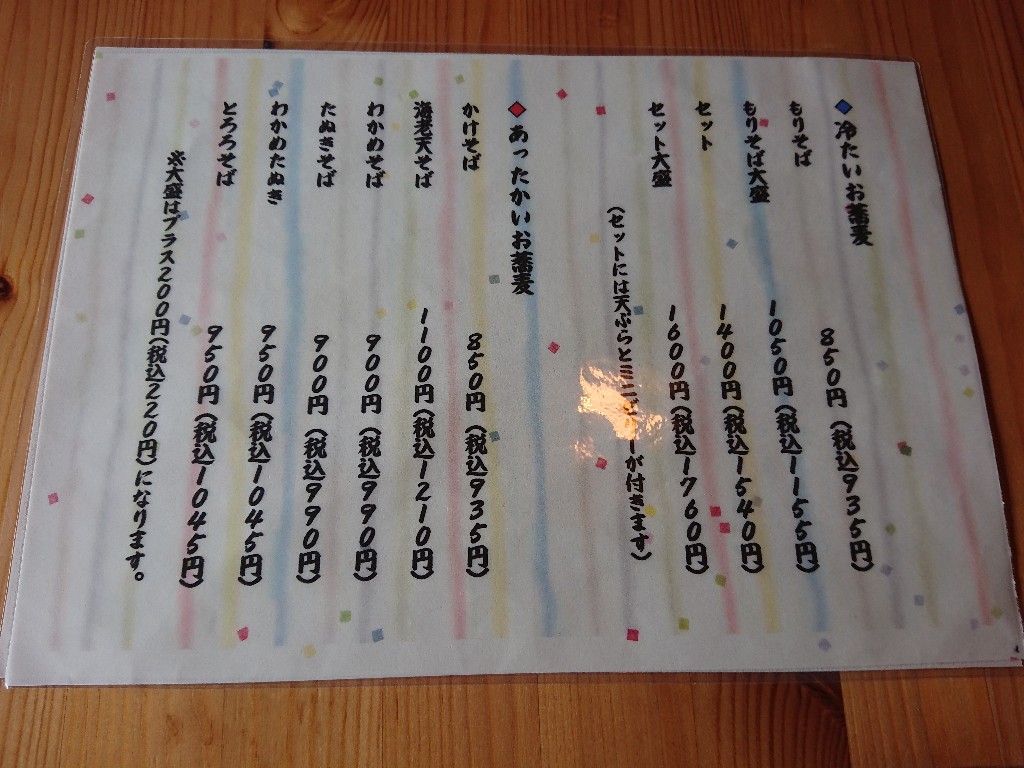 ◆冷たいお蕎麦
もりそば 850円(税込935円)
もりそば大盛 1050円(税込1155円)
セット 1400円(税込1540円)
セット大盛 1600円(税込1760円)
(セットには天ぷらとミニ ーが付きます)
◆あったかいお蕎麦
かけそば 850円(税込935円)
海老天そば 1100円(税込1210円)
わかめそば 900円(税込990円)
たぬきそば 900円(税込990円)
わかめたぬき 950円(税込1045円)
とろろそば 950円(税込1045円)
※大盛はプラス200円(税込220円)になります。